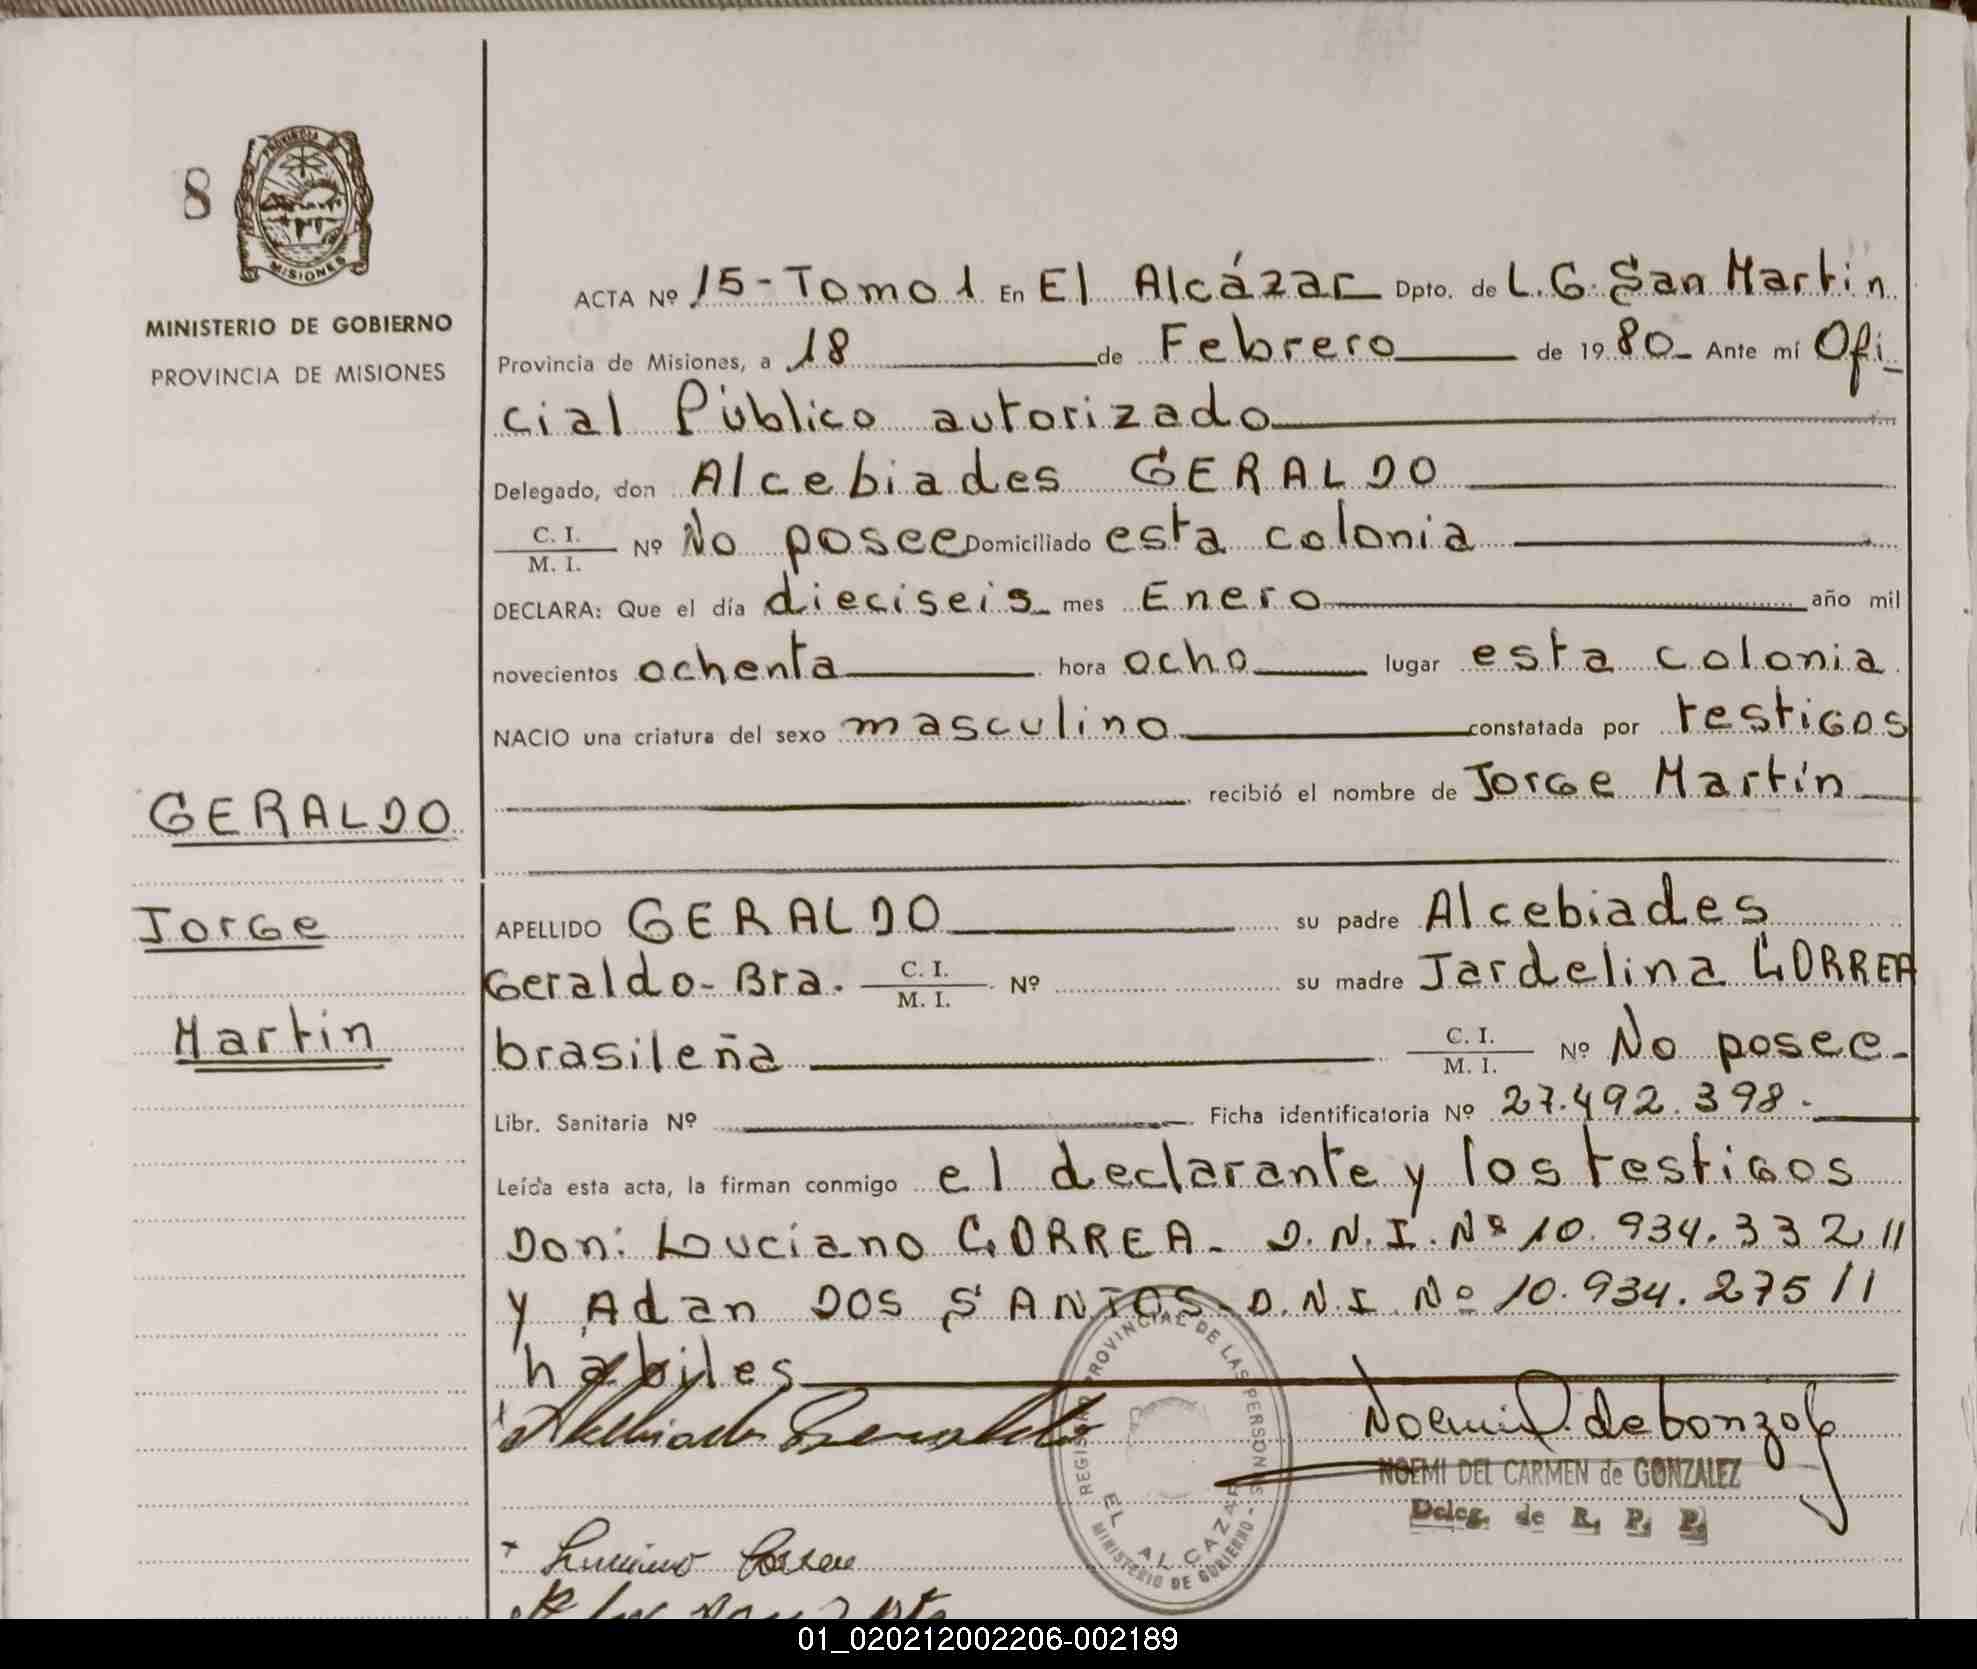 8
PROVINCIA
MISIONES
MINISTERIO DE GOBIERNO
PROVINCIA DE MISIONES
ACTA Nº 15-Tomo 1 En El Alcázar Dpto. de L.G. San Martín
Provincia de Misiones, a 18 de Febrero de 1980 Ante mí Ofi-
cial Público autorizado
Delegado, don Alcebiades GERALDO
C. I.
M. I. Nº No posee Domiciliado esta colonia
DECLARA: Que el día dieciseis mes Enero año mil
novecientos ochenta hora ocho lugar esta colonia
NACIO una criatura del sexo masculino constatada por testigos
recibió el nombre de Jorge Martín
GERALDO
Jorge
Martín
APELLIDO GERALDO su padre Alcebiades
Geraldo- Bra. C. I.
M. I. Nº su madre Jardelina CORREA
brasileña C. I.
M. I. Nº No posee-
Libr. Sanitaria Nº Ficha identificatoria Nº 27.492.398.-
Leída esta acta, la firman conmigo el declarante y los testigos
Don: Luciano CORREA- D.N.I. Nº 10.934.332 //
y Adan DOS SANTOS- D.N.I. Nº 10.934.275 //
habiles
Alcebiades Geraldo
NOEMI DEL CARMEN de GONZALEZ
Deleg. de R. P. P.
Luciano Correa
REGISTRO PROVINCIAL DE LAS PERSONAS
EL ALCAZAR
MINISTERIO DE GOBIERNO -
01_020212002206-002189